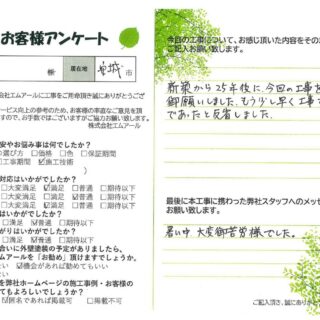 お客様アンケート
様 居住地 安城 市
式会社エムアールに工事をご用命頂き誠にありがとうござ
ービス向上の参考のため、お客様の率直なご意見を頂
すので、お手数ではございますがご協力お願い致します。
株式会社エムアール
安やお悩み事は何でしたか?
選び方 □価格 □色 □保証期間
□工事期間 ☑施工技術
対応はいかがでしたか?
□大変満足 ☑満足 □普通 □期待以下
□大変満足 ☑満足 □普通 □期待以下
はいかがでしたか?
□大変満足 □満足 ☑普通 □期待以下
はいかがでしたか?
□大変満足 □満足 ☑普通 □期待以下
合いに外壁塗装の予定がありましたら、
ムアールを「お勧め」頂けますでしょうか。
い ☑機会があれば勧めてもいい
ない
をエムアールホームページの施工事例・お客様の
てもよろしいでしょうか?
☑匿名であれば掲載可 □掲載不可
今回の工事について、お感じ頂いた内容をその
ご記入お願い致します。
新築から25年後に、今回の工事を
御願いしました。もう少し早く工事
であったと反省しました。
最後に本工事に携わった弊社スタッフへのメッセ
お願い致します。
暑い中 大変御苦労様でした。
ご記入頂き、誠にあり